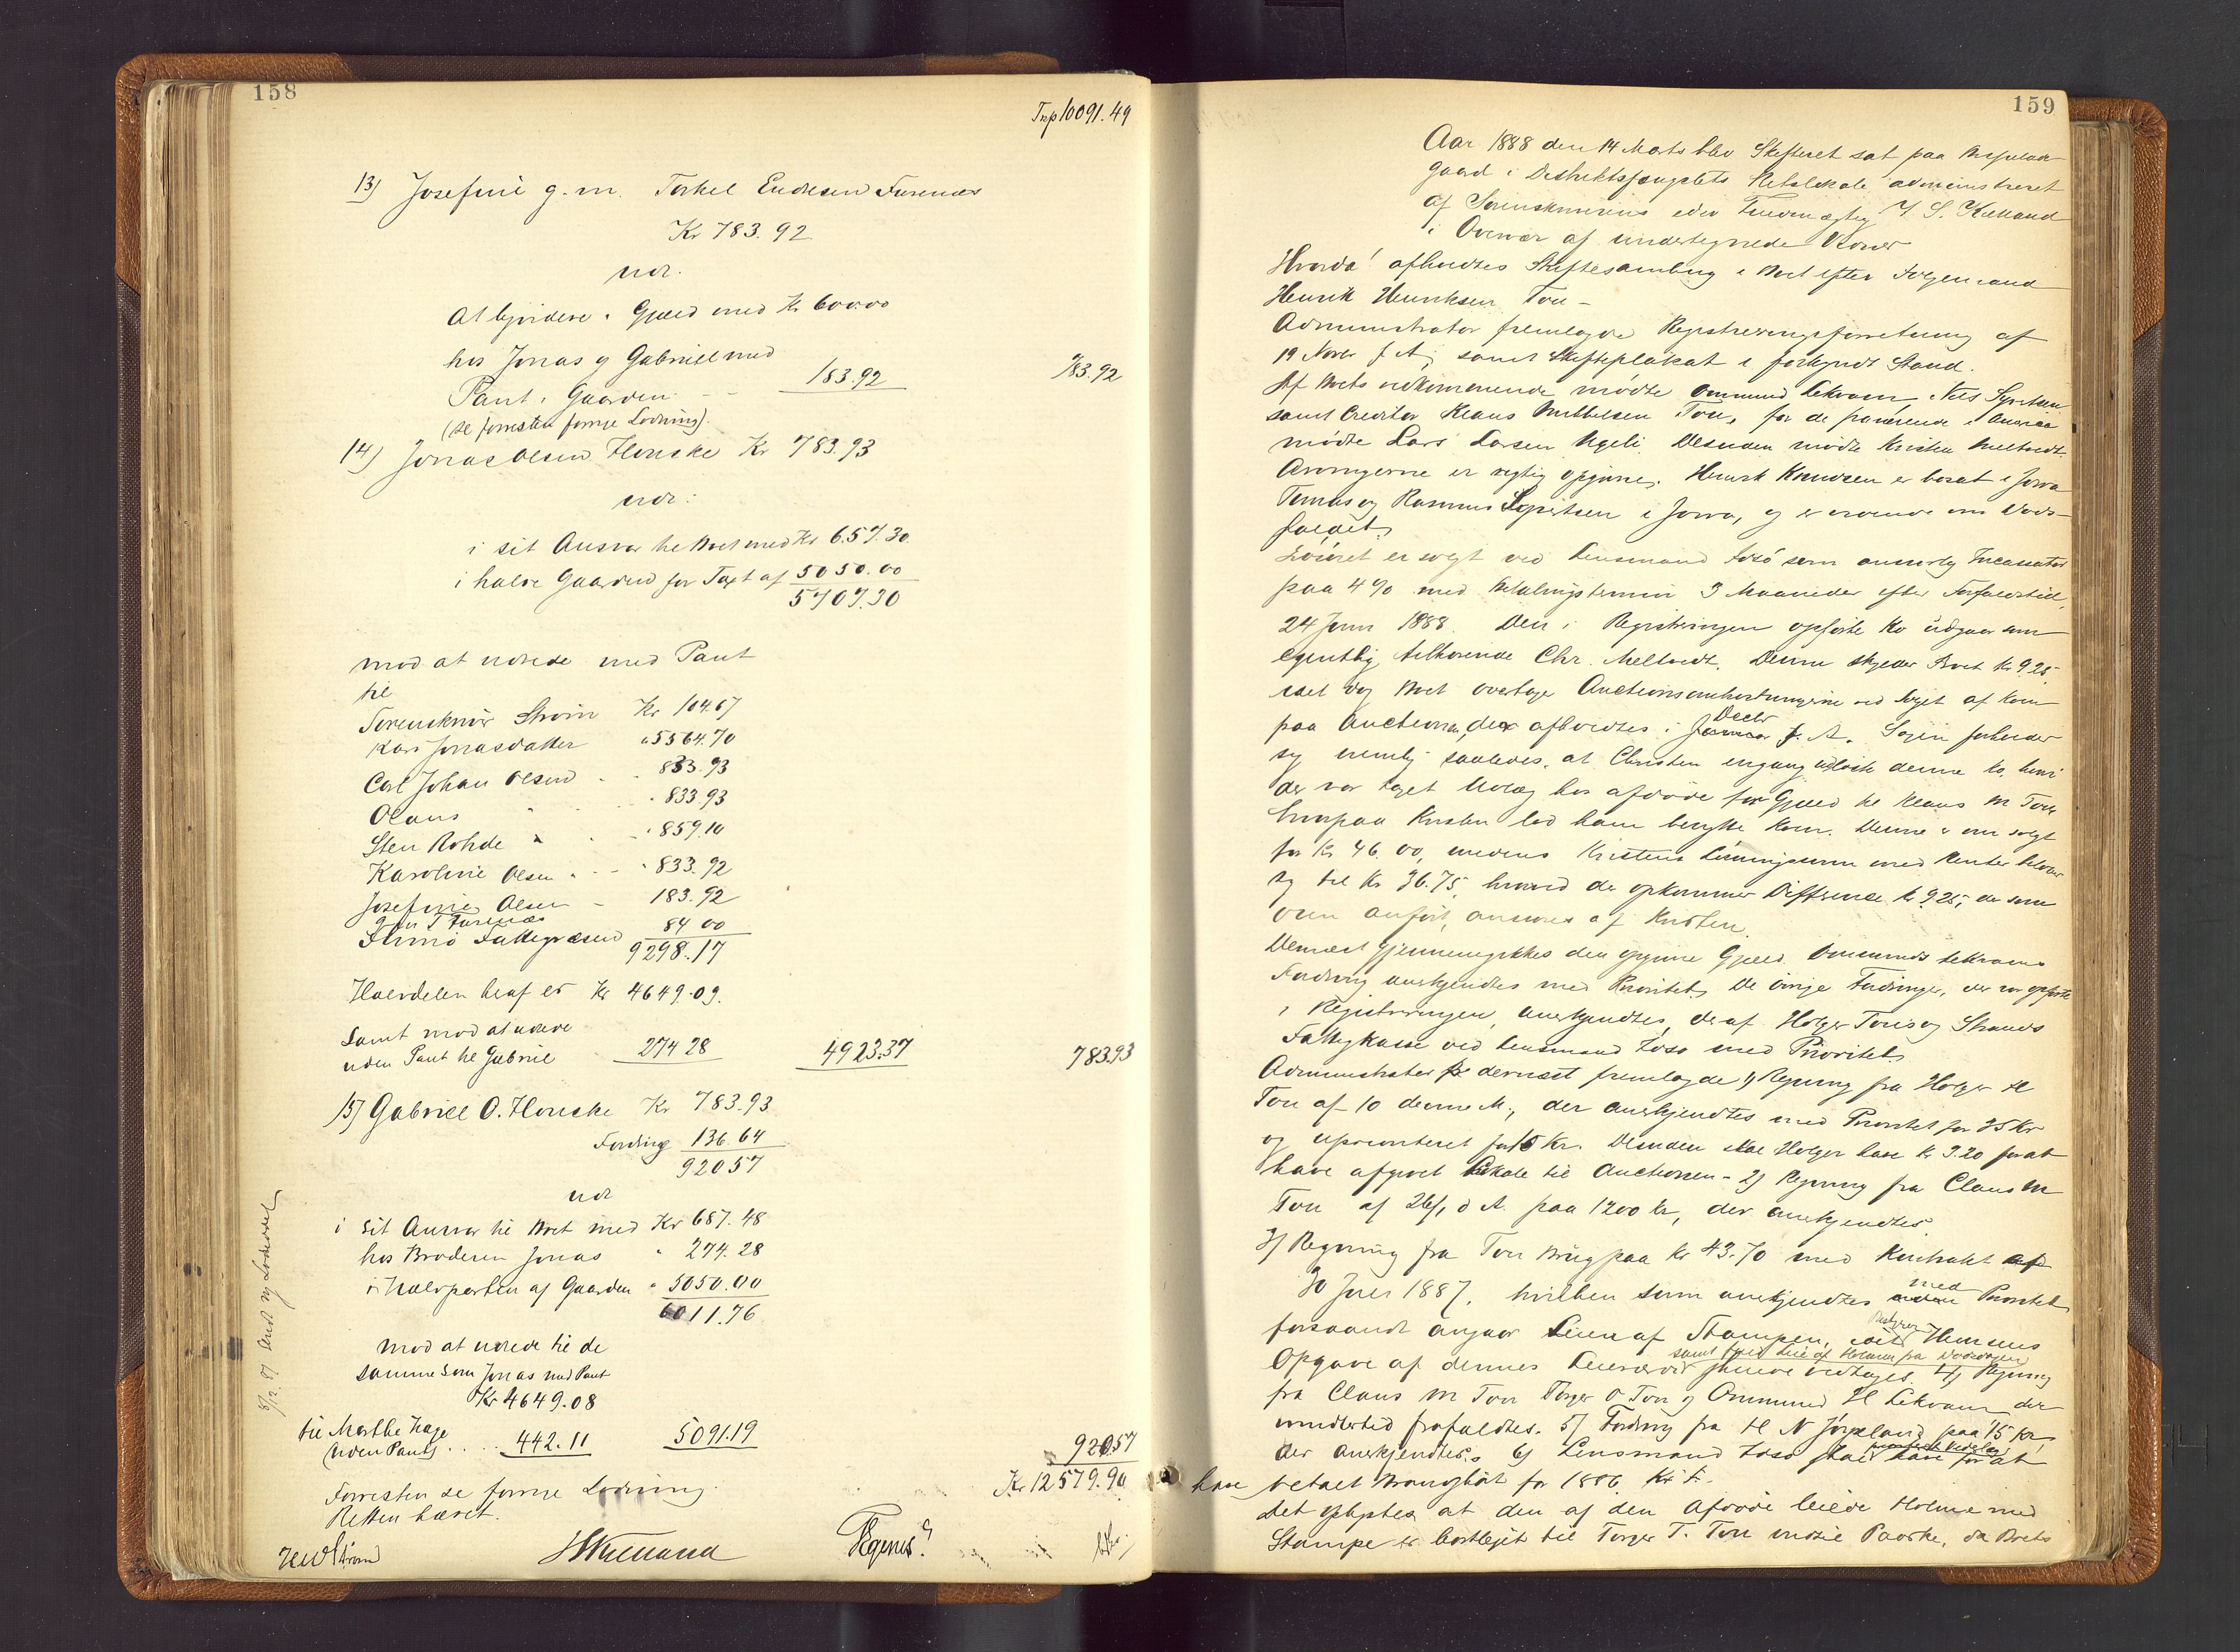 158
Trsp 10091.49
13) Josefine g. m. Torkel Endresen Furenes
Kr 783.92
udl.
At byrdere i Gjæld med Kr 600.00
hos Jonas og Gabriel med
Pant i Gaarden 183.92 783.92
(se forresten forrige Lodning).
14) Jonas Olsen Houske Kr 783.93
udl:
i sit Ansvar til Boet med Kr 657.30
i halve Gaarden for Taxt af 5050.00
5707.30
mod at udrede med Pant
til
Sorenskriver Strøm Kr 104.67
Kari Jonasdatter " 5564.70
Carl Johan Olsen - " 833.93
Olaus " " 833.93
Sten Rohde " " 859.10
Karoline Olsen " - " 833.92
Josefine Olsen - 183.92
g. m. T Furenæs
Fattigvæsen 84 00
9298.17
Halvdelen heraf er Kr 4649.09.
Samt mod at udrede
uden Pant til Gabriel 274 28 4923.37 783.93
15) Gabriel O. Houske Kr 783.93
Fordring 136.64
920.57
udl
i sit Ansvar til Boet med Kr 687.48
hos Broderen Jonas " 274.28
i Halvparten af Gaarden " 5050.00
6011.76
mod at udrede til de
samme som Jonas med Pant
Kr 4649.08
til Marthe Hage
(uden Pant) . . . . 442.11 5091.19 920.57
Kr 12579.90
Forresten se forrige Lodning.
Retten hævet.
HWStrøm Kielland
159
Aar 1888 den 14 Marts blev Skifteret sat paa
gaard i Distriktsfængslets Retslokale administreret
af Sorenskriverens edsv Fuldmægtig J. S. Kielland
i Overvær af undertegnede Vidner
Hvorda! afholdtes Skiftesamling i Boet efter Folgemand
Henrik Henriksen Tou -
Administrator fremlagde Registreringsforretning af
19 Novbr f. A., samt Skifteplakat i forkyndt Stand.
Af Boets vedkommende mødte Ommund Lekvam, Nils
samt Creditor Klaus Mikkelsen Tou, for de fraværende i Amerika
mødte Lars Larsen Desuden mødte Kristen Meltveit.
Arvingerne er rigtig opgivne. Henrik Knudsen er bosat i Jowa
Tomas og Rasmus i Jowa, og er vidende om Døds-
faldet.
Løsøret er solgt ved Lensmand Løsø som ansvarlig Incassator
paa 4 % med Betalingstermin 3 Maaneder efter Forfaldstid,
24 Juni 1888. Den i Registreringen opførte Ko udgaar som
egentlig tilhørende Chr. Meltveit. Denne skylder Boet Kr 9.25
idet dog Boet overtage Auctionsomkostningerne ved Salget af Koen
paa Auctionen, der afholdtes i Januar Decbr f. A. Sagen forholder
sig nemlig saaledes, at Christen engang udløste denne Ko, hvori
der var taget Udlæg hos afdøde for Gjæld til Klaus M Tou
hvorpaa Kristen lod ham benytte Koen. Denne er nu solgt
for Kr 46.00, medens Kristens Løsningssum med Renter beløber
sig til Kr 36.75, hvorved der opkommer Difference Kr 9.25, der som
oven anført, ansvares af Kristen.
Dernæst gjennemgikkes den opgivne Gjæld. Ommunds Lekvams
Fordring anerkjendtes med Prioritet. De øvrige Fordringer, der var opførte
i Registreringen, anerkjendtes, deraf Holger Tous og Strands
Fattigkasse ved Lensmand Løsø med Prioritet.
Administrator dernæst fremlagde 1) Regning fra Holger H
Tou af 10 denne M., der anerkjendtes med Prioritet for 35 Kr
og uprioriteret for 15 Kr. Desuden skal Holger have Kr 3.20 for at
have afgivet Lokale til Auctionen - 2) Regning fra Claus M
Tou af 26/1 d. A. paa 1200 kr, der anerkjendtes.
3) Regning fra Tou Brug paa Kr 43.70 med Kontrakt af
30 Juli 1887, hvilken sum anerkjendtes uden med Prioritet
forsaavidt angaar Leien af Stampen, idet Henriks
Opgave af dennes Leieværdi 4) Regning
samt for Leie af Holmen
fra Claus M Tou Torger O Tou og Ommund H Lekvam der
imidlertid frafaldtes. 5) Fordring fra H N Jørpeland paa 15 Kr
der anerkjendtes. 6) Lensmand Løsø skal have for at
have betalt for 1886. Kr
Det oplystes at den af den Afdøde leiede Holme med
Stampe er bortleiet til Torger T. Tou indtil Paaske, da Boets